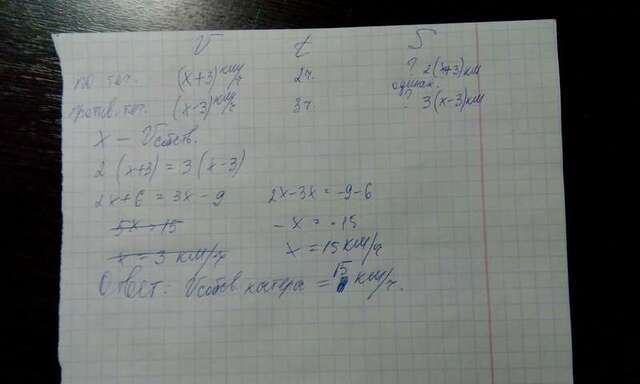 V t S
по теч. (x+3) км/ч 2ч. ? 2(x+3) км
одинак.
против. теч. (x-3) км/ч 3ч. ? 3(x-3) км
x - Vсобств.
2(x+3) = 3(x-3)
2x+6 = 3x-9 2x-3x = -9-6
5x = 15 -x = -15
x = 3 км/ч x = 15 км/ч
Ответ: Vсобств катера = 15 км/ч.